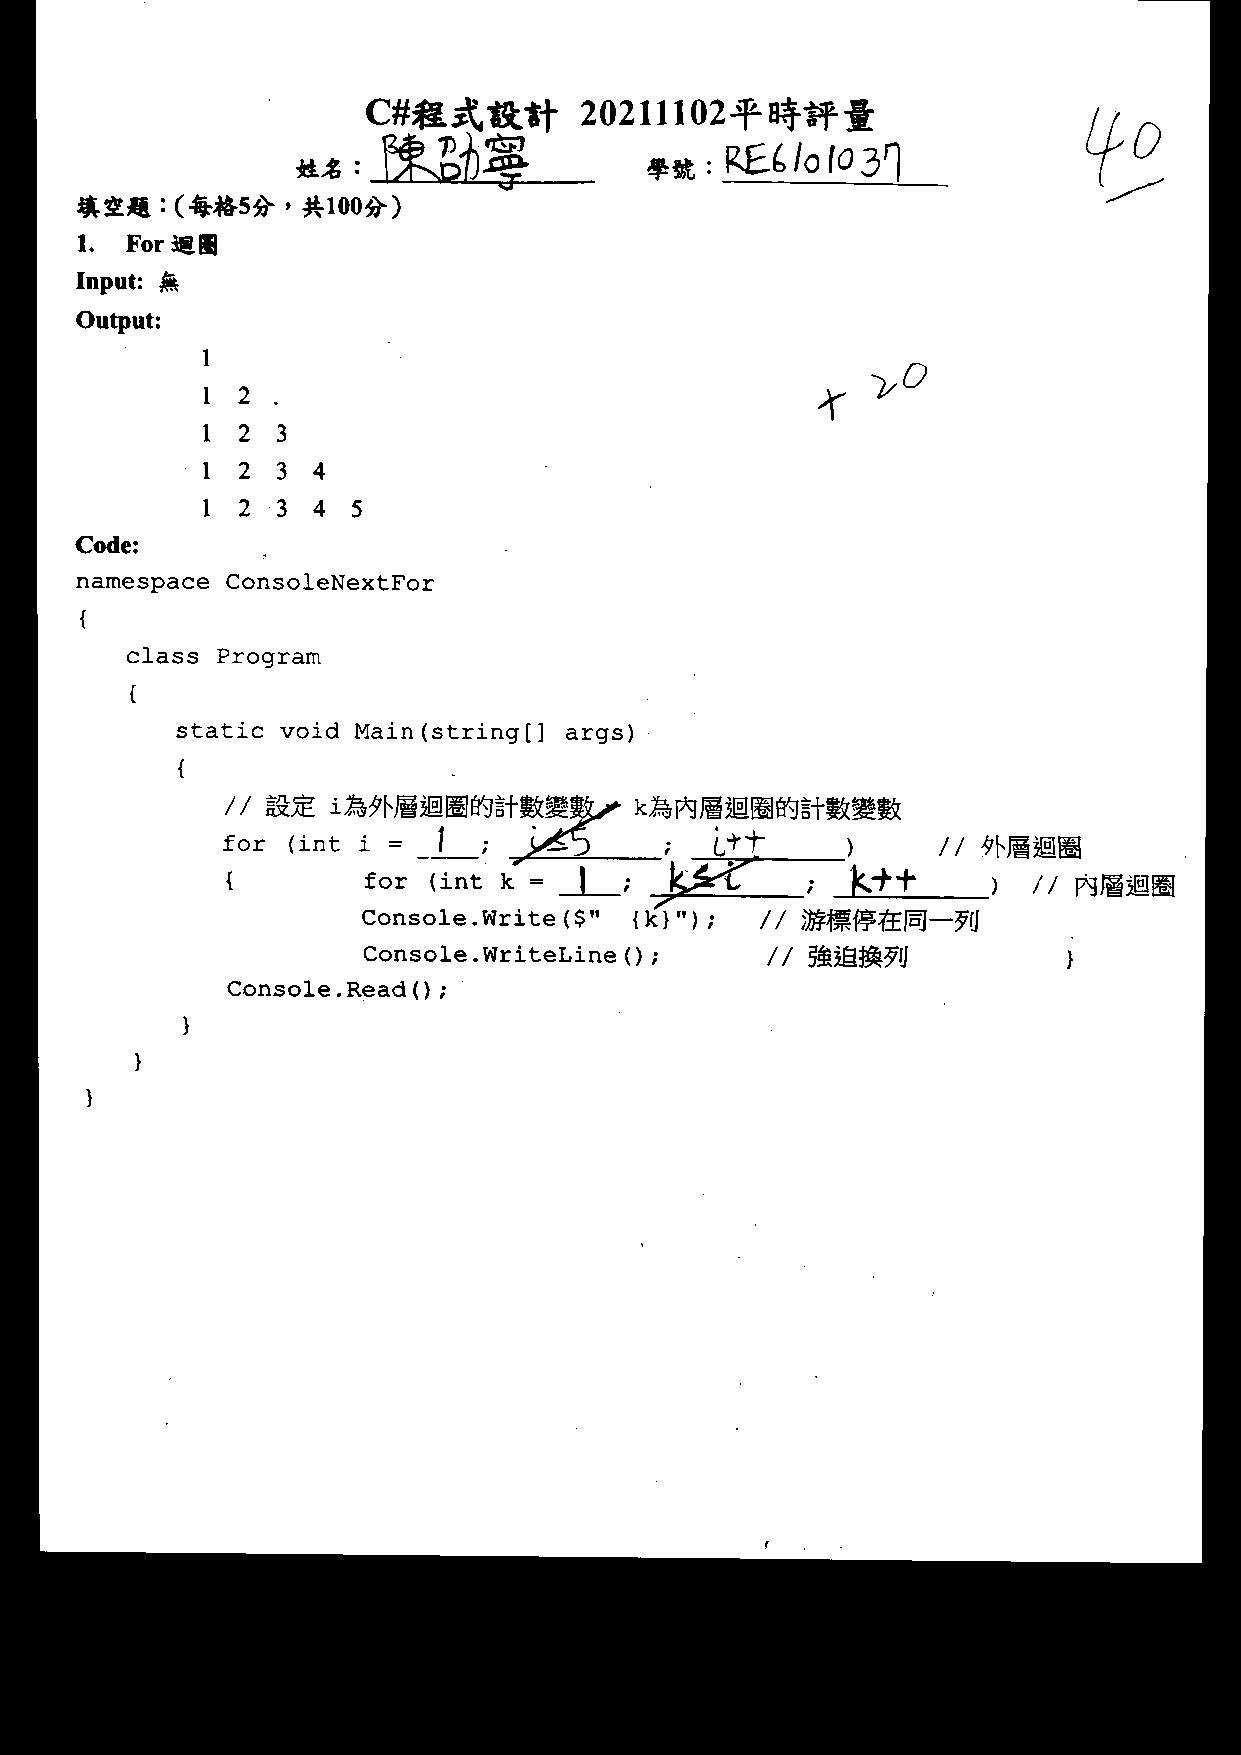 C#程式設計 20211102平時評量
40
姓名：陳劭寧 學號：RE6101037
填空題：(每格5分，共100分)
1. For 迴圈
Input: 無
Output:
1
+20
1 2
1 2 3
1 2 3 4
1 2 3 4 5
Code:
namespace ConsoleNextFor
{
class Program
{
static void Main(string[] args)
{
// 設定 i為外層迴圈的計數變數, k為內層迴圈的計數變數
for (int i = 1 ; i≤5 ; i++ ) // 外層迴圈
{ for (int k = 1 ; k≤i ; k++ ) // 內層迴圈
Console.Write($" {k}"); // 游標停在同一列
Console.WriteLine(); // 強迫換列 }
Console.Read();
}
}
}